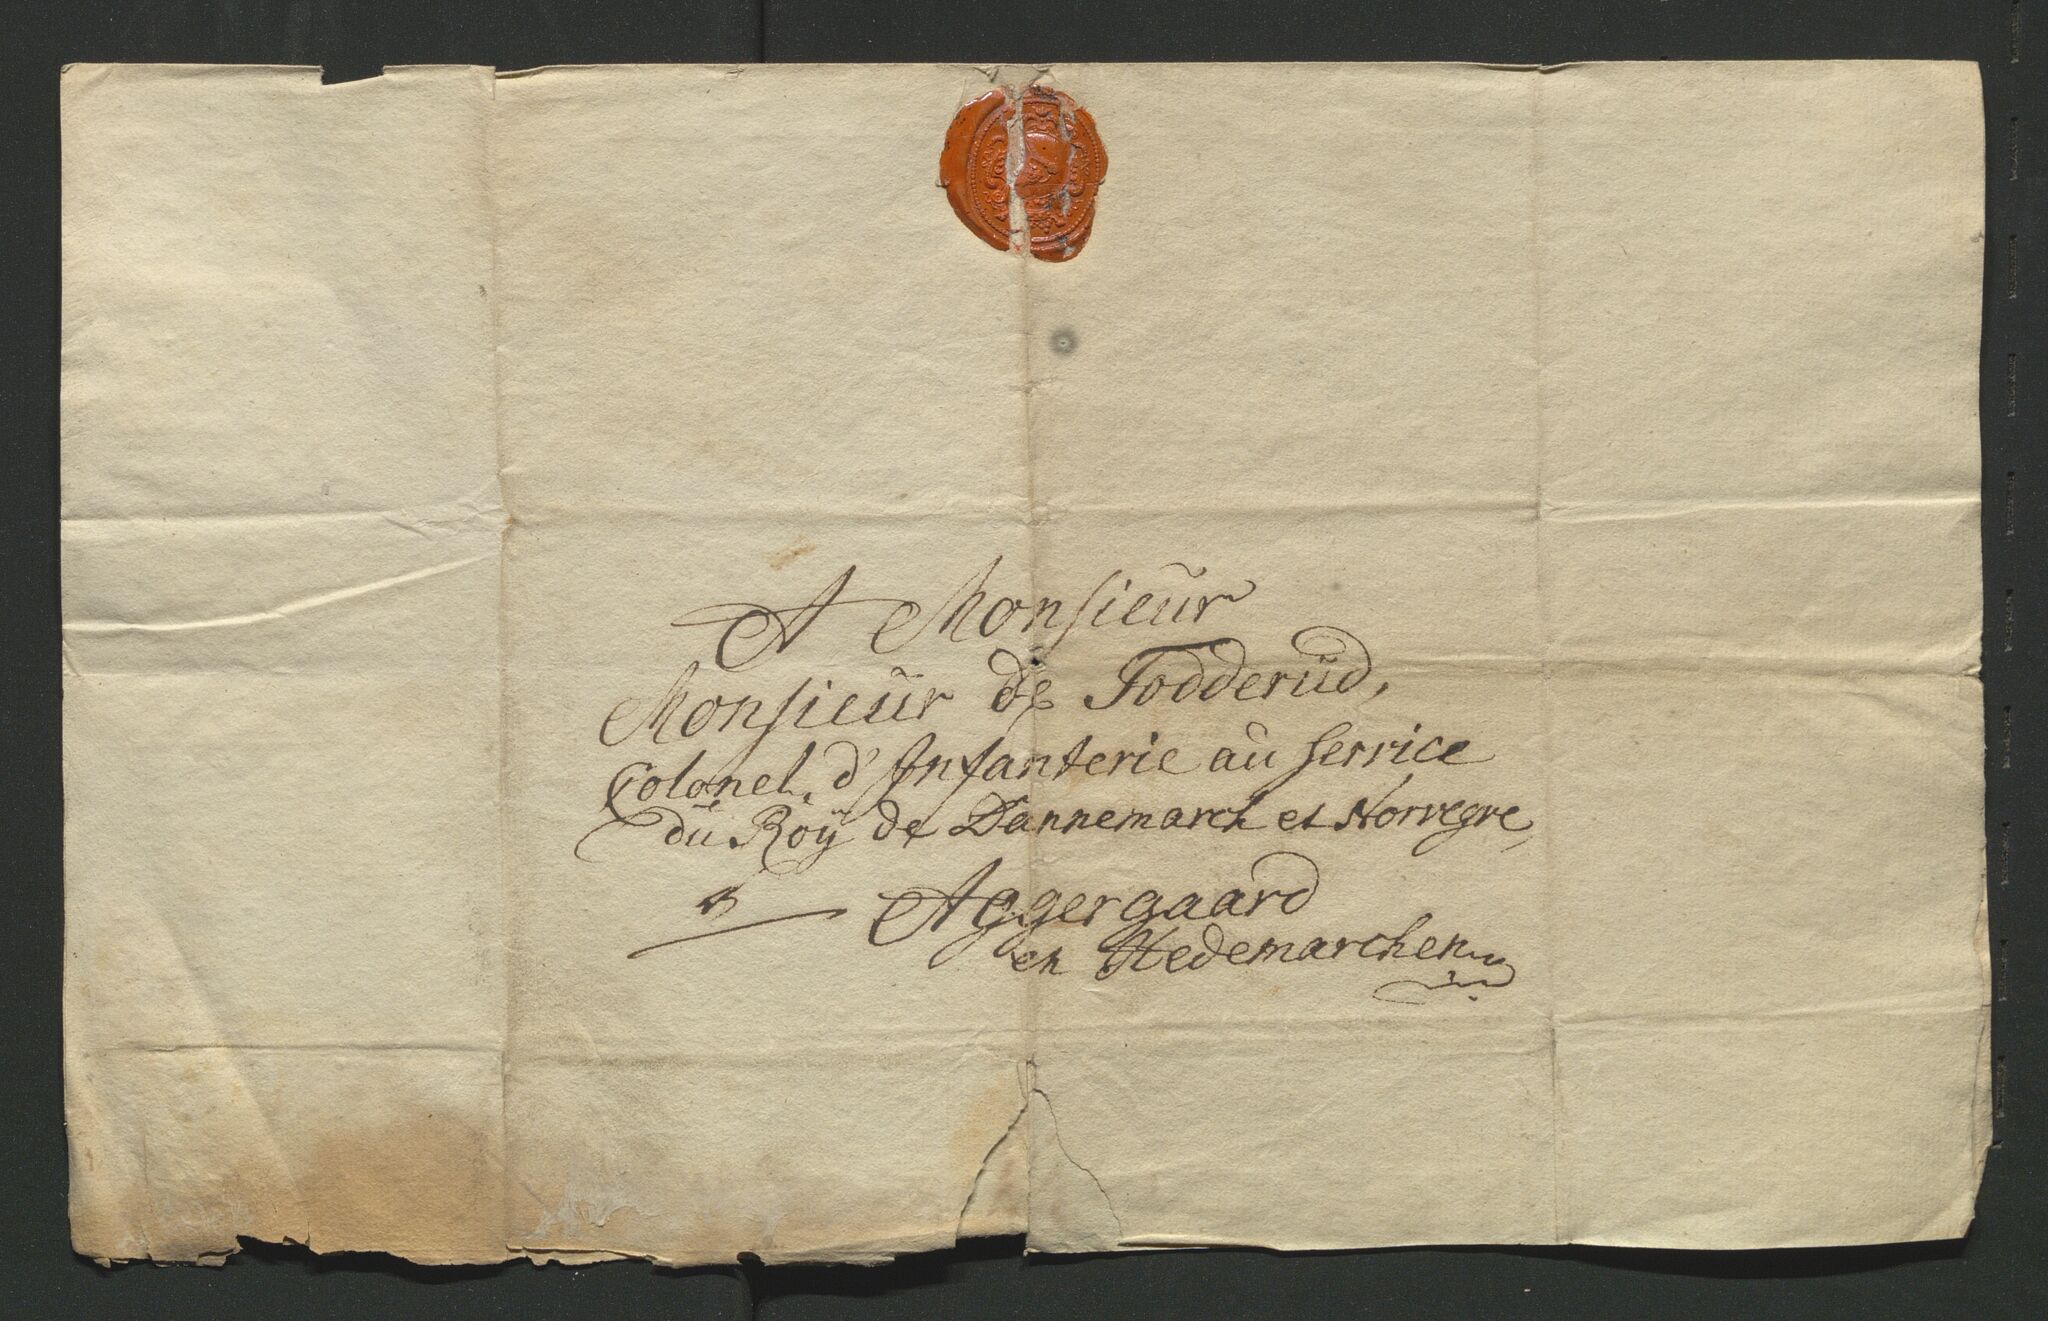 A Monsieur
Monsieur de Todderud,
Colonel d'Infanterie au service
du Roÿ de Dannemarch et Norvegve,
Aggergaard
en Hedemarchen